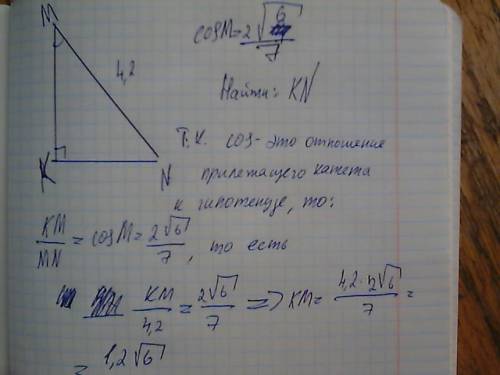 M
cosM = 2√6/7
4,2
Найти: KN
K
N
Т.К. cos - это отношение
прилежащего катета
к гипотенузе, то:
KM/MN = cosM = 2√6/7, то есть
KM/4,2 = 2√6/7 => KM = 4,2·2√6/7 =
= 1,2√6